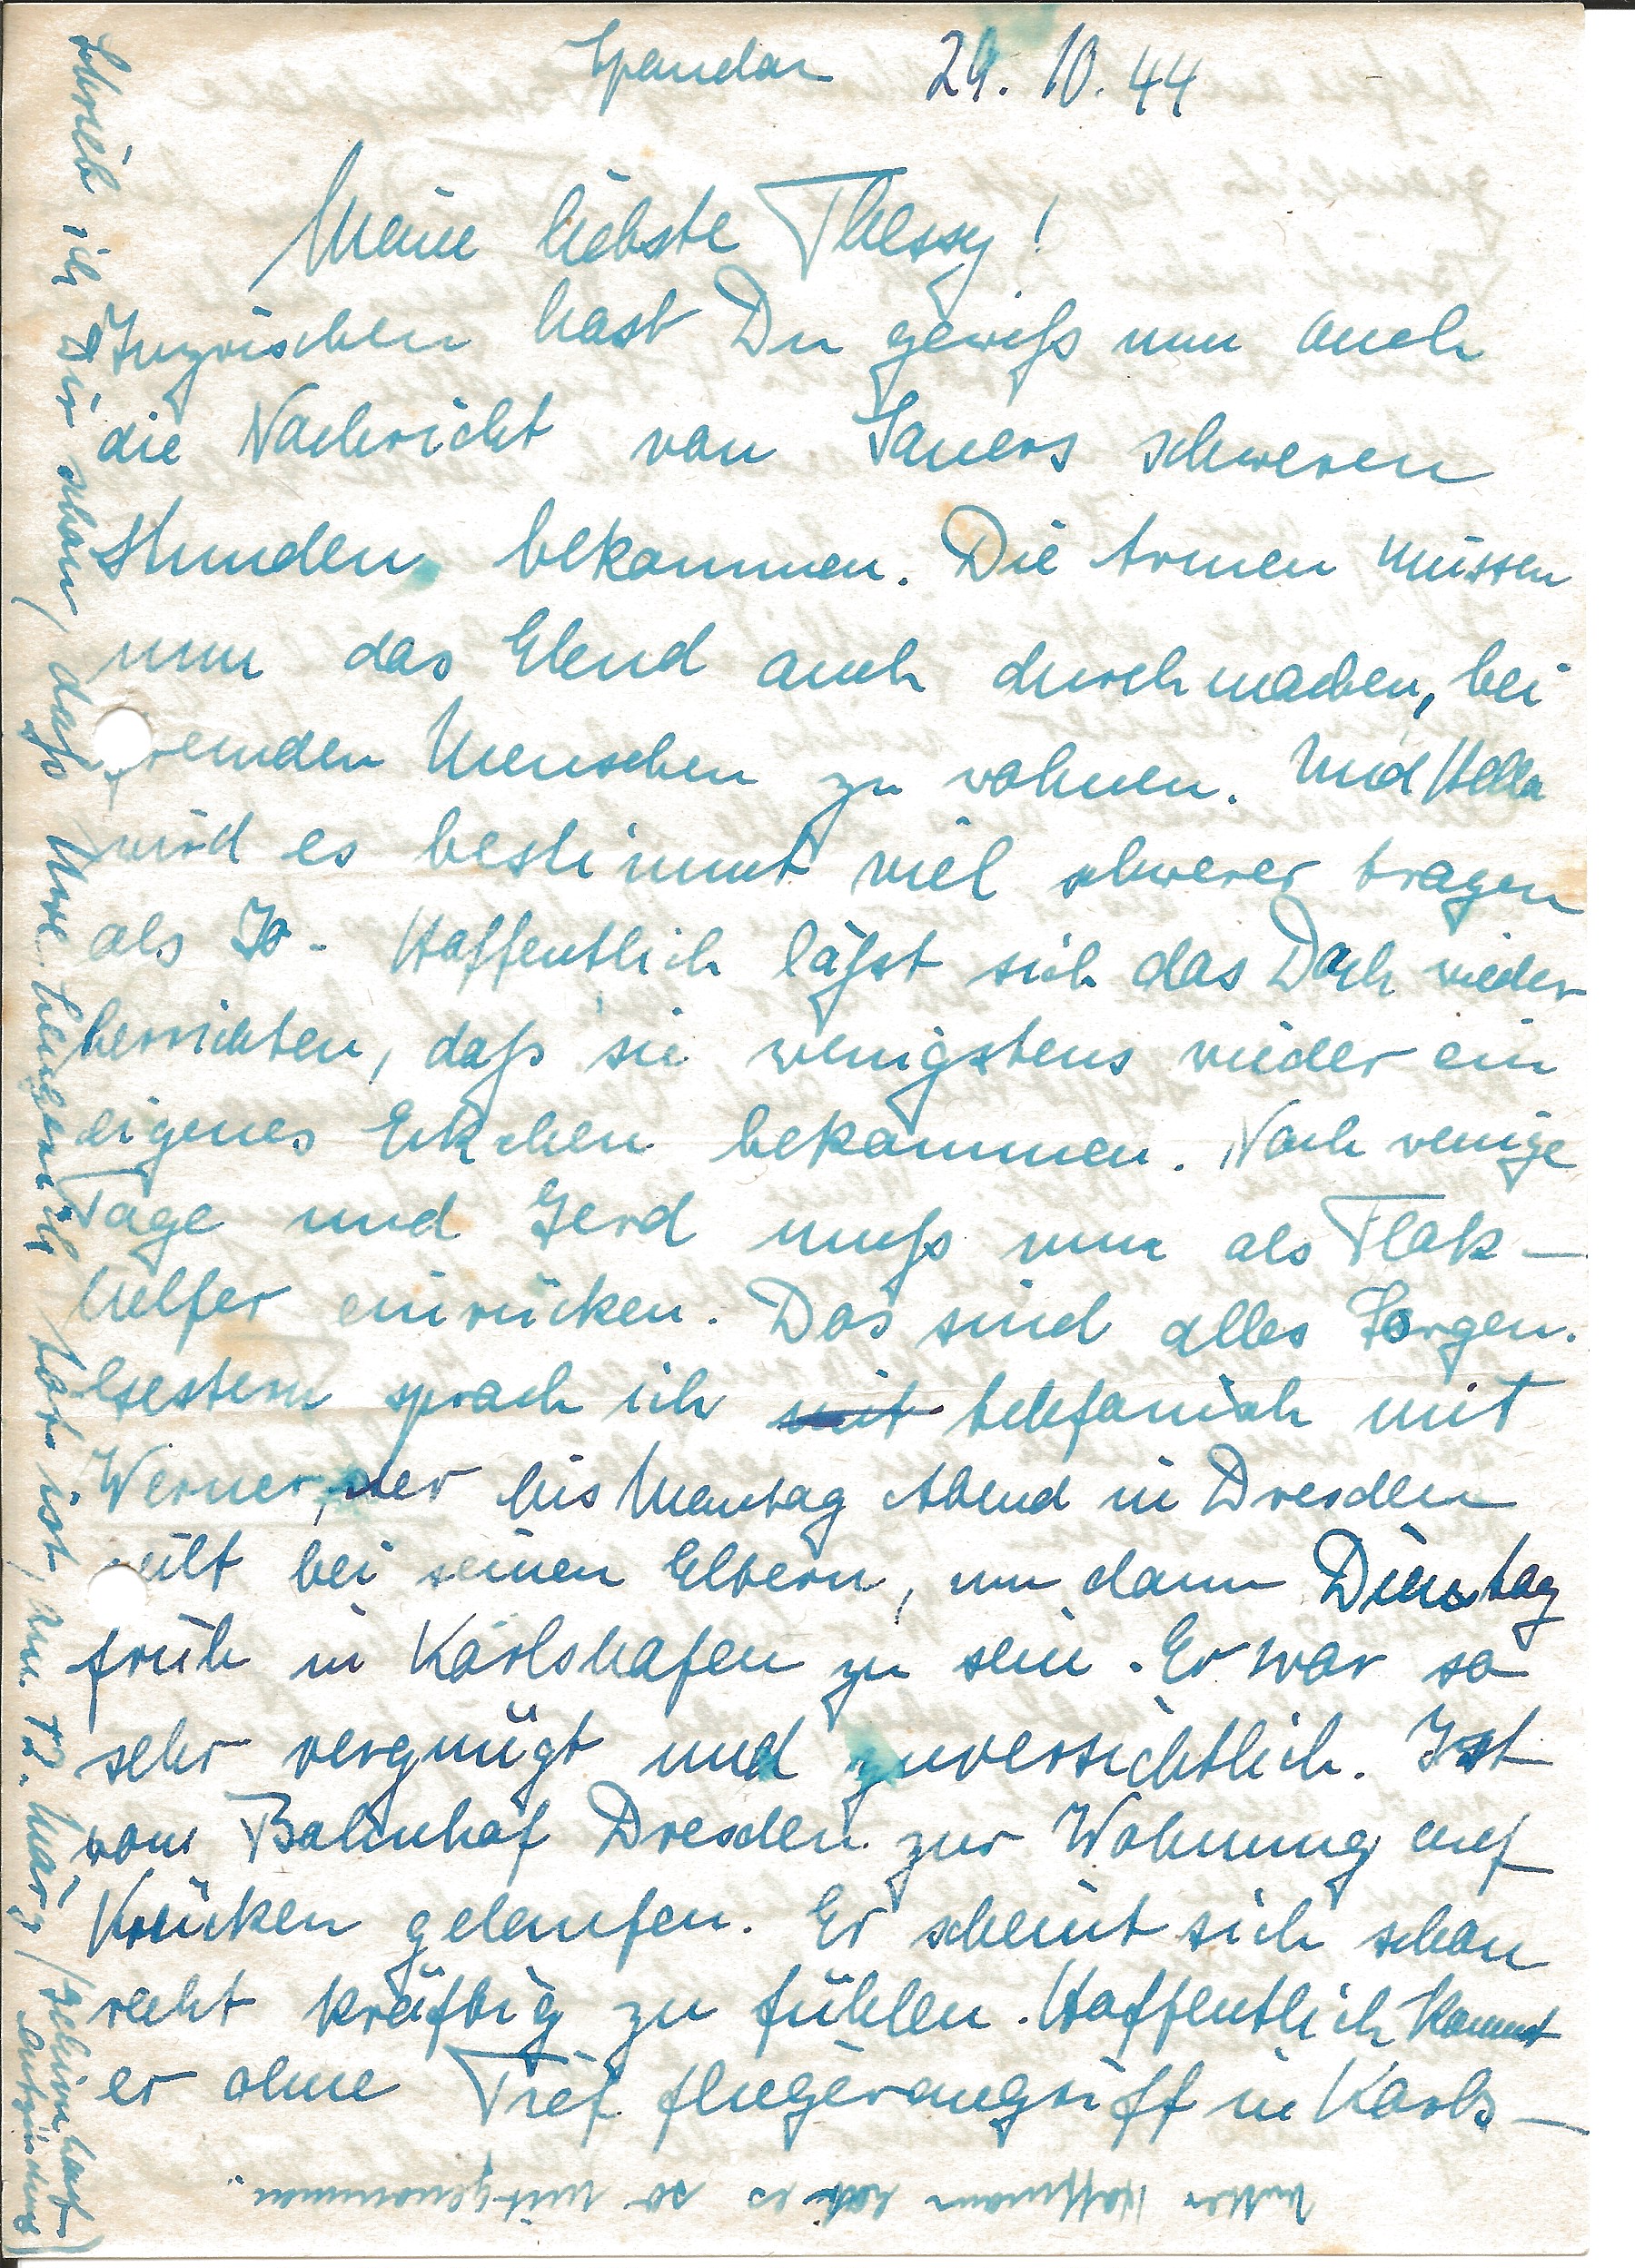 Spandau 29. 10. 44
Meine liebste Thessy!
Inzwischen hast Du gewiß nun auch
die Nachricht von Sauers schweren
Stunden bekommen. Die Armen müssen
nun das Elend auch durchmachen, bei
fremden Menschen zu wohnen. Und Hella
wird es bestimmt viel schwerer tragen
als Jo. Hoffentlich läßt sich das Dach wieder
herrichten, daß sie wenigstens wieder ein
eigenes Eckchen bekommen. Noch wenige
Tage und Gerd muß nun als Flak-
helfer einrücken. Das sind alles Sorgen.
Gestern sprach ich mit telefonisch mit
Werner, der bis Montag Abend in Dresden
weilt bei seinen Eltern, um dann Dienstag
früh in Karlshafen zu sein. Er war so
sehr vergnügt und zuversichtlich. Ist
vom Bahnhof Dresden zur Wohnung auf
Krücken gelaufen. Er scheint sich schon
recht kräftig zu fühlen. Hoffentlich kommt
er ohne Tieffliegerangriff in Karls-
Schrieb ich Dir schon, daß Uwe tot ist, am 12. März (Gehirnhaut
entzündung)
Mutter Hoffmann hat es so mitgenommen.